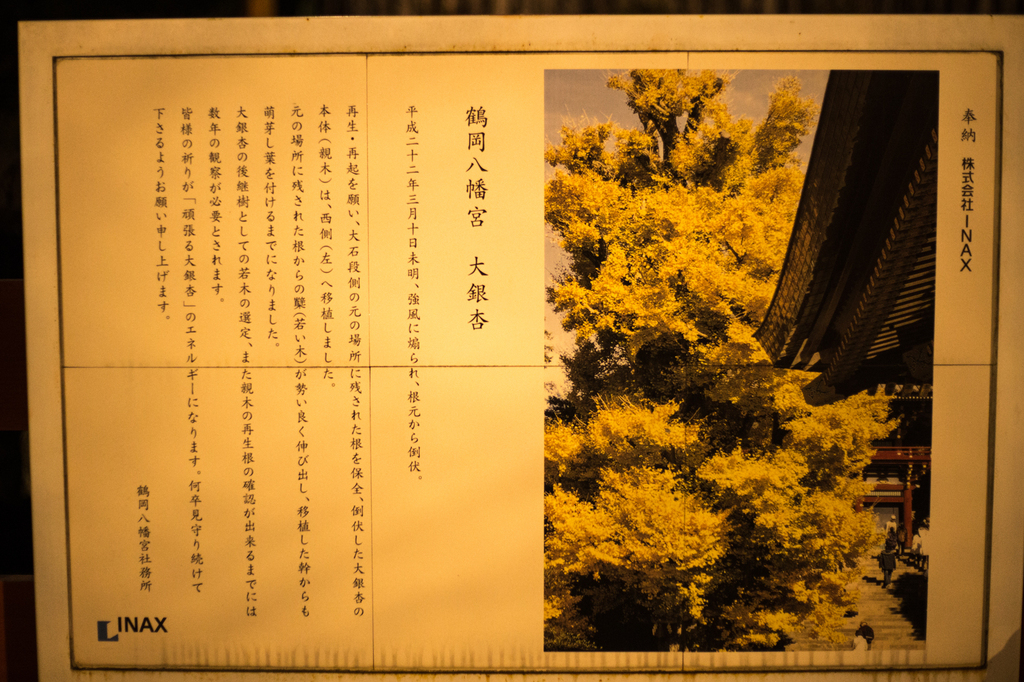 奉納 株式会社INAX
鶴岡八幡宮 大銀杏
平成二十二年三月十日未明、強風に煽られ、根元から倒伏。
再生・再起を願い、大石段側の元の場所に残された根を保全、倒伏した大銀杏の
本体(親木)は、西側(左)へ移植しました。
元の場所に残された根からの蘖(若い木)が勢い良く伸び出し、移植した幹からも
萌芽し葉を付けるまでになりました。
大銀杏の後継樹としての若木の選定、また親木の再生根の確認が出来るまでには
数年の観察が必要とされます。
皆様の祈りが「頑張る大銀杏」のエネルギーになります。何卒見守り続けて
下さるようお願い申し上げます。
鶴岡八幡宮社務所
INAX